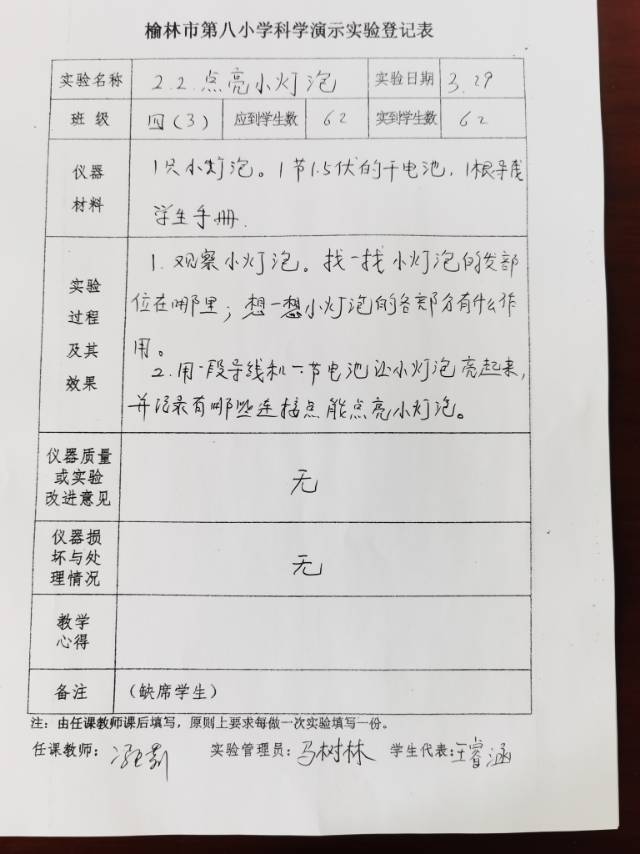 榆林市第八小学科学演示实验登记表
实验名称 2.2.点亮小灯泡 实验日期 3.29
班 级 四(3) 应到学生数 62 实到学生数 62
仪器
材料
1只小灯泡。1节1.5伏的干电池,1根导线
学生手册.
实验
过程
及其
效果
1.观察小灯泡。找一找小灯泡的各部
位在哪里;想一想小灯泡的各部分有什么作
用。
2.用一段导线和一节电池让小灯泡亮起来,
并记录有哪些连接点能点亮小灯泡。
仪器质量
或实验
改进意见
无
仪器损
坏与处
理情况
无
教学
心得
备注 (缺席学生)
注:由任课教师课后填写,原则上要求每做一次实验填写一份。
任课教师: 实验管理员:马树林 学生代表:王睿涵